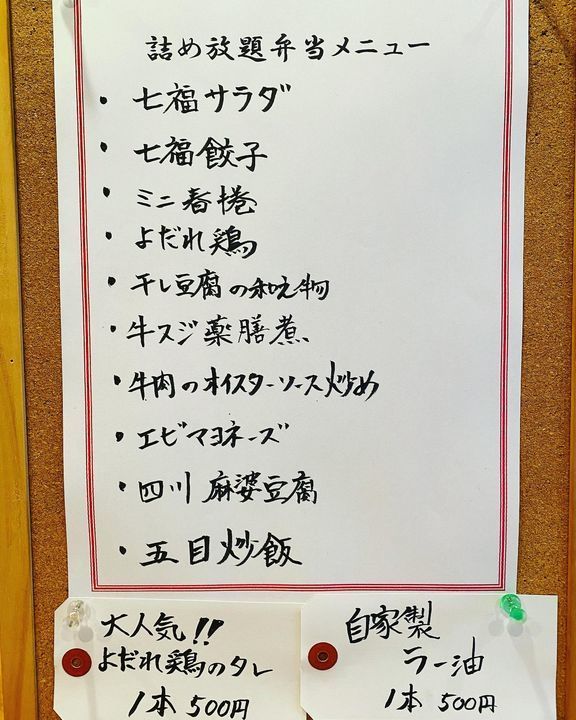 詰め放題弁当メニュー
・七福サラダ
・七福餃子
・ミニ春捲
・よだれ鶏
・干し豆腐の和え物
・牛スジ薬膳煮
・牛肉のオイスターソース炒め
・エビマヨネーズ
・四川麻婆豆腐
・五目炒飯
大人気!!
よだれ鶏のタレ
1本500円
自家製
ラー油
1本500円